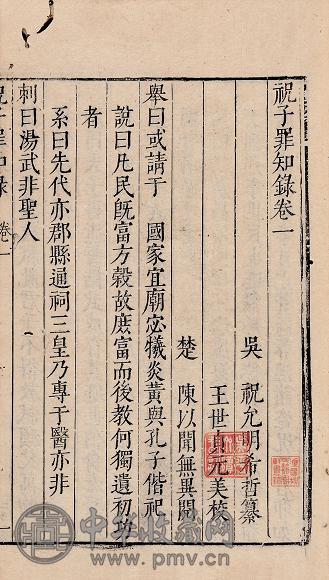 祝子罪知錄卷一
吳 祝允明希哲纂
王世貞元美校
楚 陳以聞無異閱
舉曰或請于 國家宜廟宓犧炎黃與孔子偕祀
說曰凡民旣富方穀故庶富而後敎何獨遺初攻
者
系曰先代亦郡縣通祠三皇乃專于醫亦非
刺曰湯武非聖人
祝子罪知錄 卷一
中华收藏网
www.pmv.cn